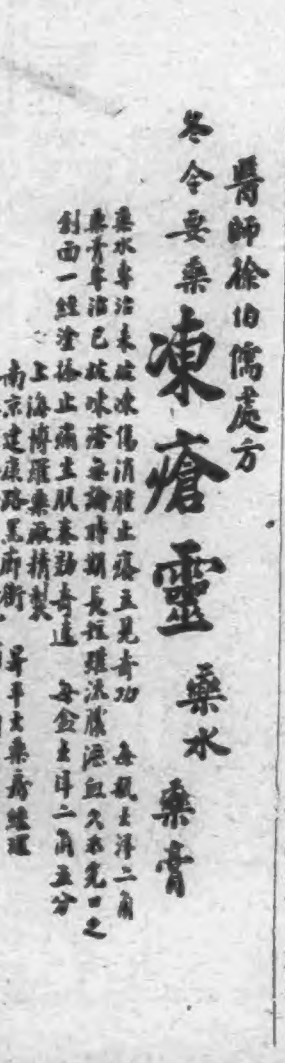 醫師徐伯儒處方
冬令要藥 凍瘡靈 藥水 藥膏
藥水專治未破凍傷消腫止癢立見奇功 每瓶大洋二角
藥膏專治已破凍瘡無論時期長短雖決膿流血久不完口之
創面一經塗搽止痛生肌奏効奇速 每盒大洋二角五分
上海博羅藥廠精製
南京建康路黑廊街 昇平大藥房經理